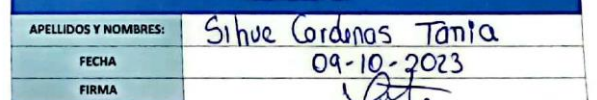 APELLIDOS Y NOMBRES: Sihue Cardenas Tania
FECHA 09-10-2023
FIRMA